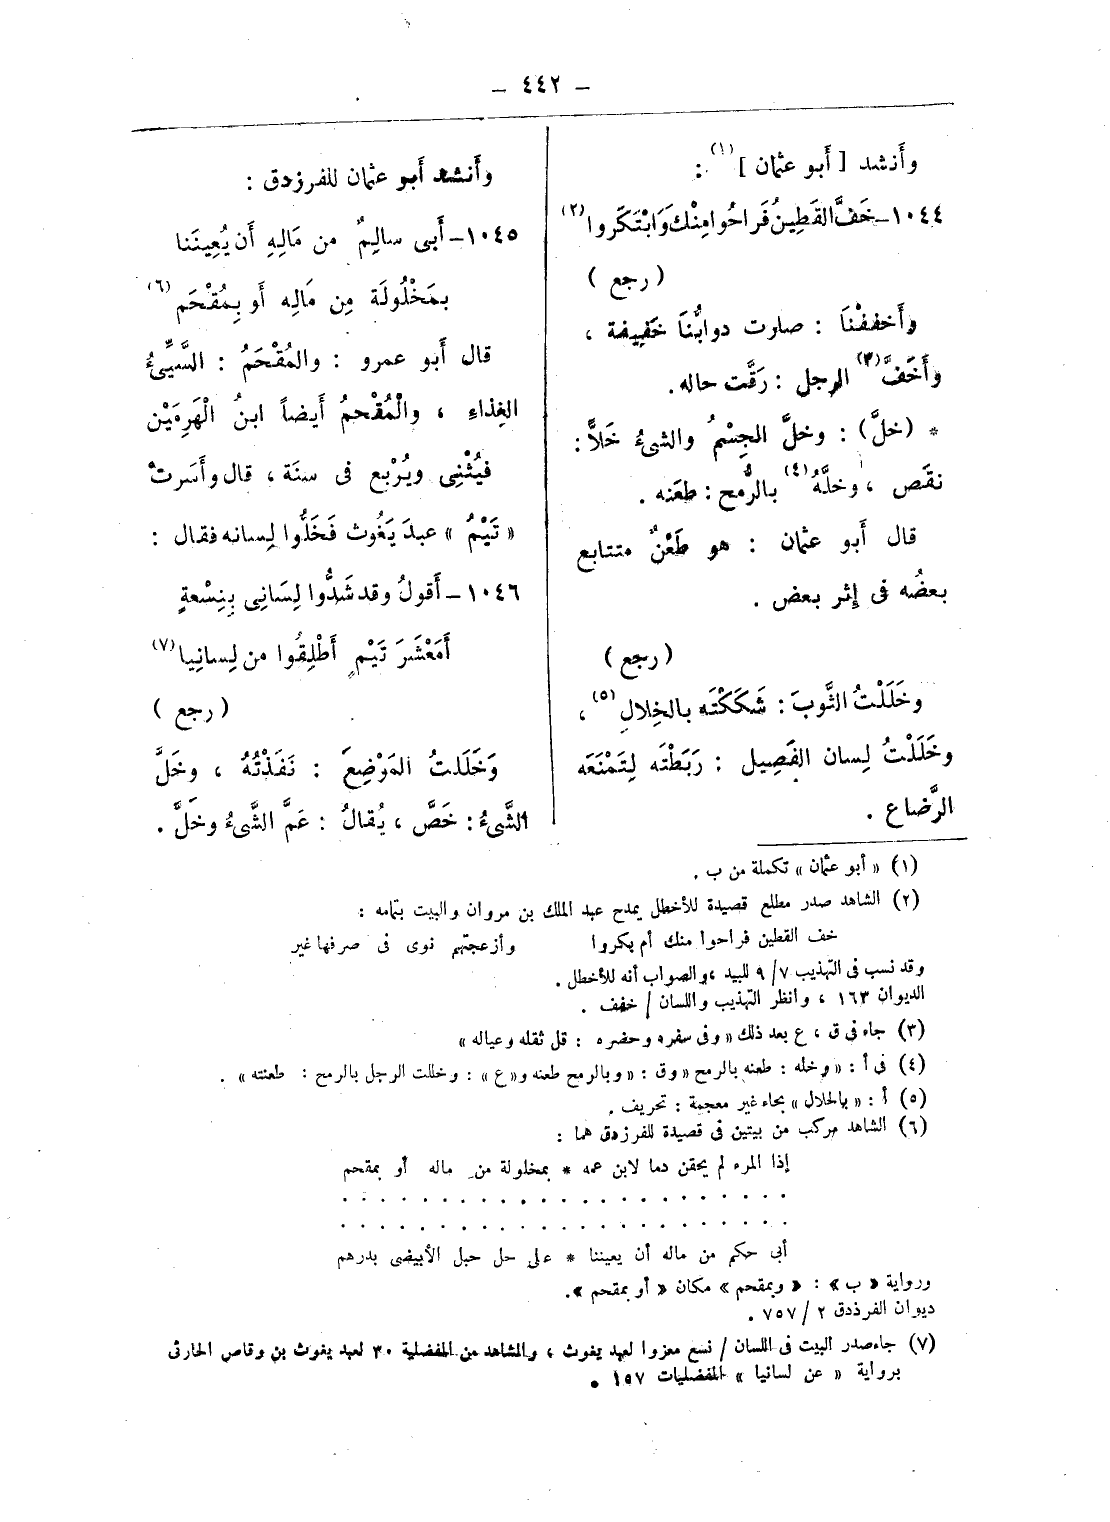 – ٤٤٢ –
وأَنشد [ أَبو عثمان ] (١) :
١٠٤٤ – خَفَّ القَطِينُ فَراحُوا مِنْكَ وَابْتَكَروا (٢)
( رجع )
وأَخففْنَا : صارت دوابُّنَا خَفِيفة ،
وأَخَفَّ (٣) الرجل : رَقَّت حاله.
* (خلَّ) : وخلَّ الجِسْمُ والشىءُ خَلاًّ :
نقَص ، وخلَّهُ (٤) بالرُّمح : طعَنه .
قال أَبو عثمان : هو طَعْنٌ متتابع
بعضُه فى إِثر بعض .
( رجع )
وخَلَلْتُ الثَّوبَ : شَكَكْتَه بالخِلالِ (٥) ،
وخَلَلْتُ لِسان الفَصِيل : رَبَطْتَه لِتَمْنَعَه
الرَّضاع .
وأَنشد أَبو عثمان للفرزدق :
١٠٤٥ – أَبى سالِمٌ من مَالِهِ أَن يُعِينَنا
بمَخْلُولَة مِن مَالِه أَو بِمُقْحَمِ (٦)
قال أَبو عمرو : والمُقْحَمُ : السَّيِّىءُ
الغِذاءِ ، والْمُقْحمُ أَيضاً ابنُ الْهَرِمَيْن
فيُثْنِى ويُرْبع فى سنَة ، قال وأَسَرتْ
« تَيْمُ » عبدَ يَغُوث فَخَلُّوا لِسانه فقال :
١٠٤٦ – أَقولُ وقد شَدُّوا لِسَانِى بِنِسْعةٍ
أَمَعْشَرَ تَيْمٍ أَطْلِقُوا من لِسانِيا (٧)
( رجع )
وَخَلَلتُ المَوْضِعَ : نَفَذْتُهُ ، وخَلَّ
الشَّىءُ : خَصَّ ، يُقالُ : عَمَّ الشَّىءُ وخَلَّ .
(١) « أبو عثمان » تكملة من ب .
(٢) الشاهد صدر مطلع قصيدة للأخطل يمدح عبد الملك بن مروان والبيت بتمامه :
خف القطين فراحوا منك أم بكروا وأزعجتهم نوى فى صرفها غير
وقد نسب فى التهذيب ٧ / ٩ للبيد ، والصواب أنه للأخطل .
الديوان ١٦٣ ، وانظر التهذيب واللسان / خفف .
(٣) جاء فى ق ، ع بعد ذلك « وفى سفره وحضره : قل ثقله وعياله »
(٤) فى أ : « وخله : طعنه بالرمح « وق : « وبالرمح طعنه و« ع » : وخللت الرجل بالرمح : طعنته » .
(٥) أ : « بالحلال » بحاء غير معجمة : تحريف .
(٦) الشاهد مركب من بيتين فى قصيدة للفرزدق هما :
إذا المرء لم يحقن دما لابن عمه * بمخلولة من ماله أو بمقحم
. . . . . . . . . . . . . . . . . . . . . . .
. . . . . . . . . . . . . . . . . . . . . . .
أبى حكم من ماله أن يعيننا * على حل حبل الأبيضى بدرهم
ورواية « ب » : « وبمقحم » مكان « أو بمقحم ».
ديوان الفرذدق ٢ / ٧٥٧ .
(٧) جاء صدر البيت فى اللسان / نسع معزوا لعبد يغوث ، والشاهد من المفضلية ٣٠ لعبد يغوث بن وقاص الحارثى
برواية « عن لسانيا » المفضليات ١٥٧ .